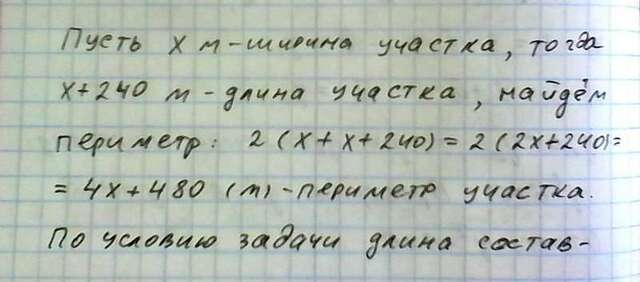 Пусть x м - ширина участка, тогда
x+240 м - длина участка, найдём
периметр: 2(x+x+240)=2(2x+240)=
=4x+480 (м) - периметр участка.
По условию задачи длина состав-